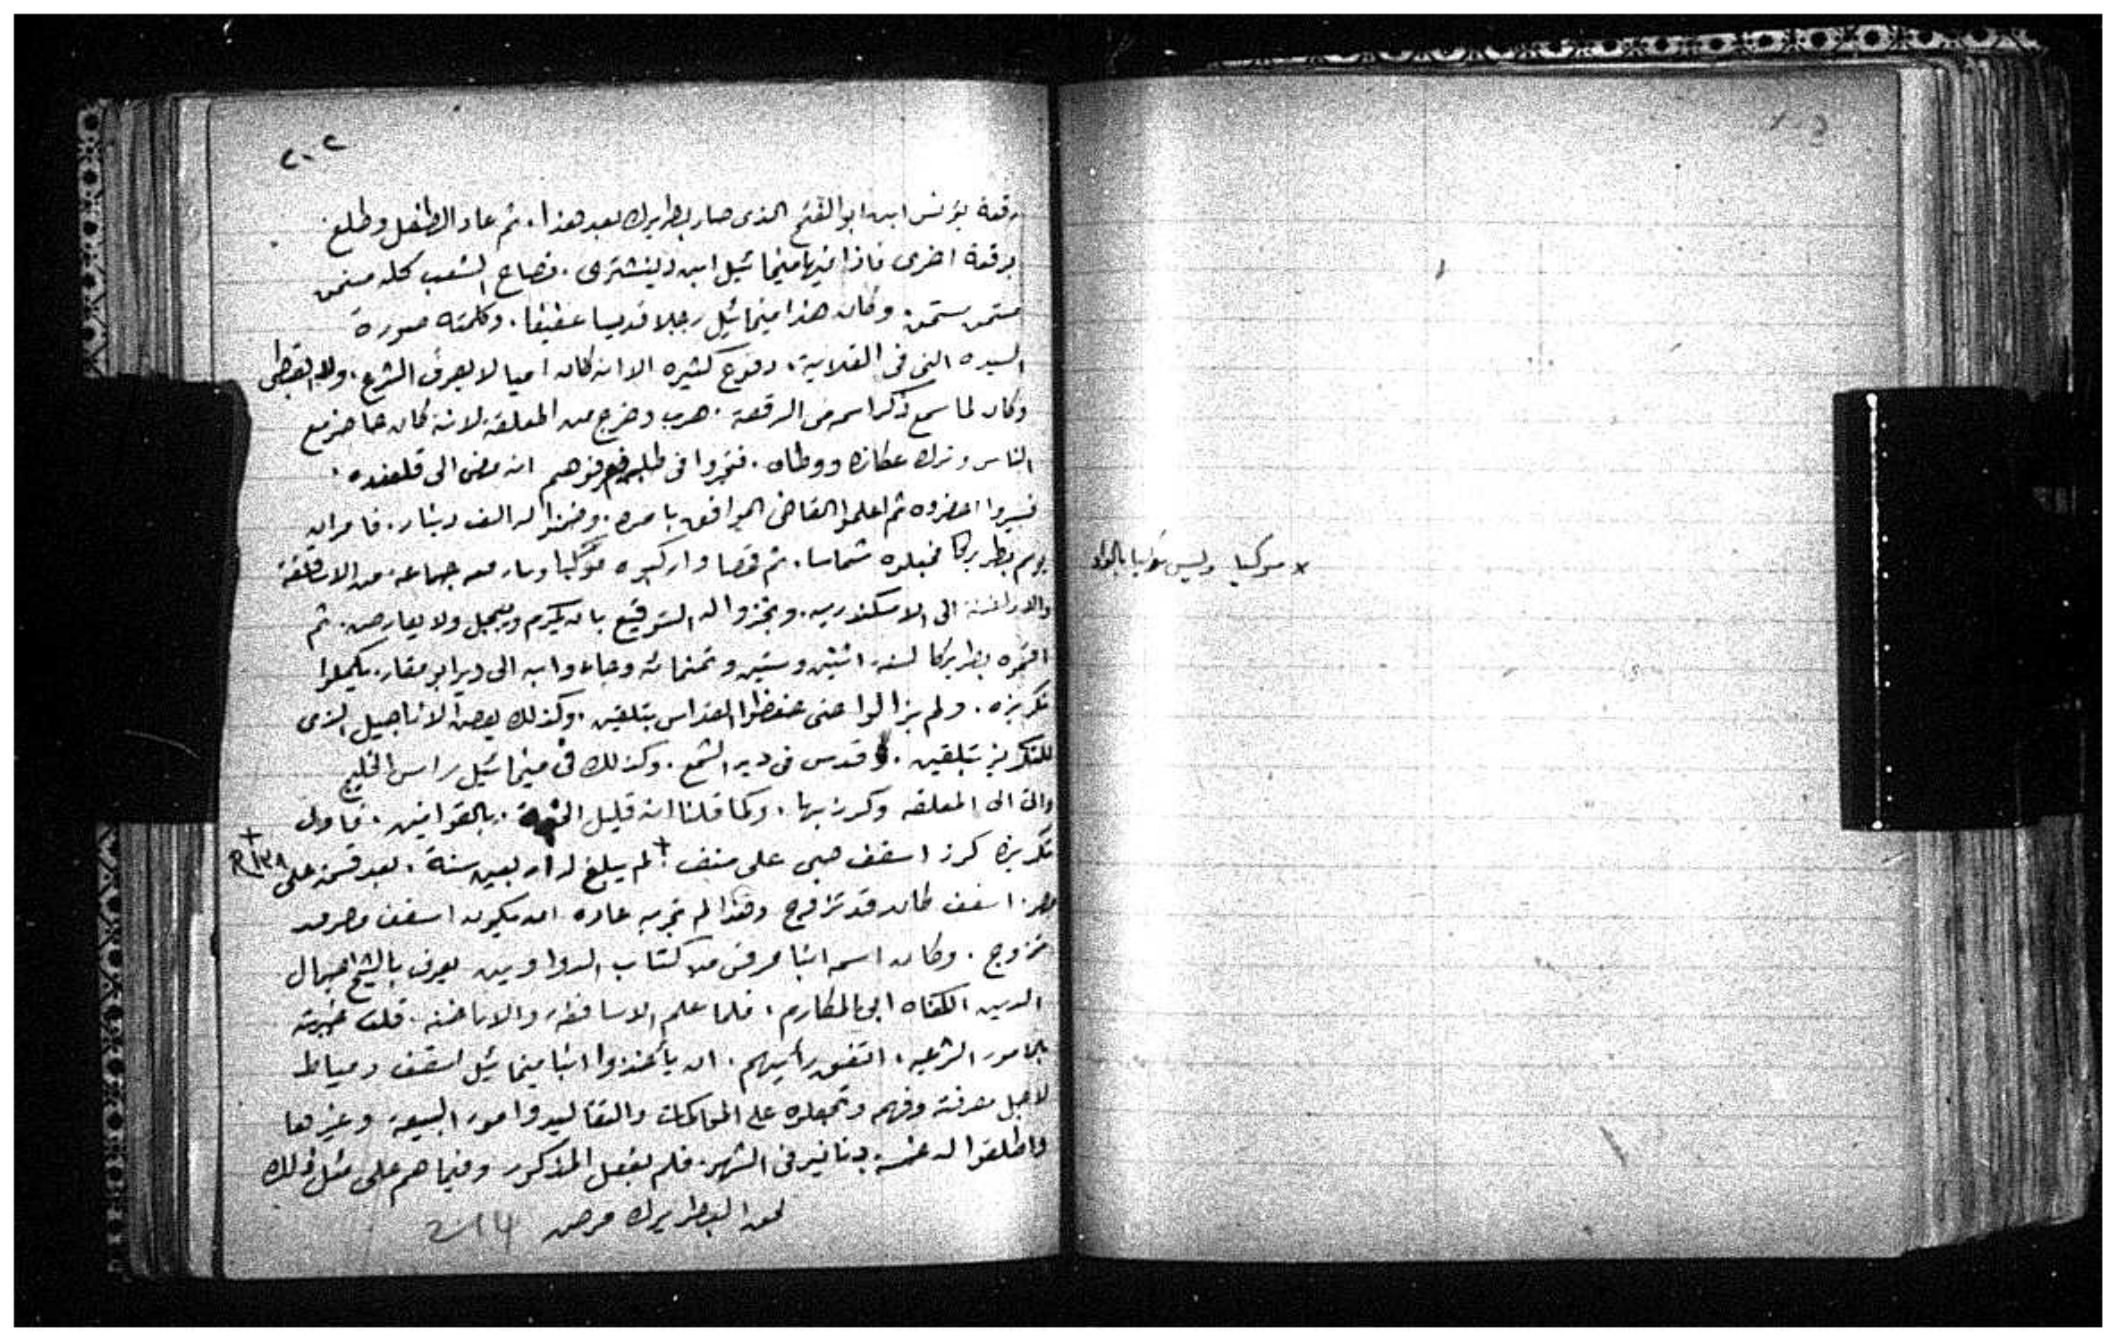 ٢٠٢
رقعة يؤنس ابن ابو الفتح الذى صار بطريرك بعد هذا. ثم عاد الطفل وطلع
برقعة اخرى فاذا فيها ميخائيل ابن دينشترى. فصاح الشعب كله مستحق
مستحق مستحق. وكان هذا ميخائيل رجلا قديسا عفيفا. وكلمته صورة
السيده التى فى القلاية. دفوع كثيره الا انه كان اميا لا يعرف الشرع. ولا القبطى
وكان لما سمع ذكر اسمه فى الرقعة. هرب وخرج من المعلقة لانه كان حاضر مع
الناس وترك عكازه ووطاه. فتحيروا فى طلبه فعرفوهم انه مضى الى
فسيروا احضروه ثم اعلموا القاضى الموافق بامره. وضمنوا له الف دينار. فامر ان
يوسم بطريركا فجعلوه شماسا. ثم قسا واركبوه موكبا وسار معه جماعة من الاساقفة
والاراخنة الى الاسكندريه. وتجزوا له التوقيع بان يكرم ويبجل ولا يعارض. ثم
اقسموه بطريركا لسنة اثنين وستين وثمنمائة وجاءوا به الى دير ابو مقار. يكملوا
تكريزه. ولم يزالوا حتى حفظوا القداس بتلقين. وكذلك بعض الاناجيل الذى
للتكريز بتلقين. وقدس فى دير الشمع. وكذلك فى ميخائيل راس الخليج
واتى الى المعلقه وكرز بها. وكما قلنا انه قليل. بالقوانين. فاول
تكريزه كرز اسقف صبى على منف + لم يبلغ له اربعين سنة. بعد قسمة على
مصر اسقف كان قد تزوج وهذا لم تجر به عاده ان يكون اسقف مصر قد
تزوج. وكان اسمه انبا مرقس من كتاب الدواوين يعرف بالشيخ جمال
الدين الكفاه ابى المكارم. فلما علم الاساقفة والاراخنه. قلت خبرته
بالامور الشرعيه. اتفق رأيهم. ان يأخذوا انبا ميخائيل اسقف دمياط
لاجل معرفته وفهمه وتجعلوه على المحاكمات والتقاليد وامور البيعة وغيرها
واطلقوا له خمسة دنانير فى الشهر. فلم يفعل المذكور وفيما هم على مثل ذلك
لحق البطريرك مرض
× موكبا وليس مؤكبا بالواو